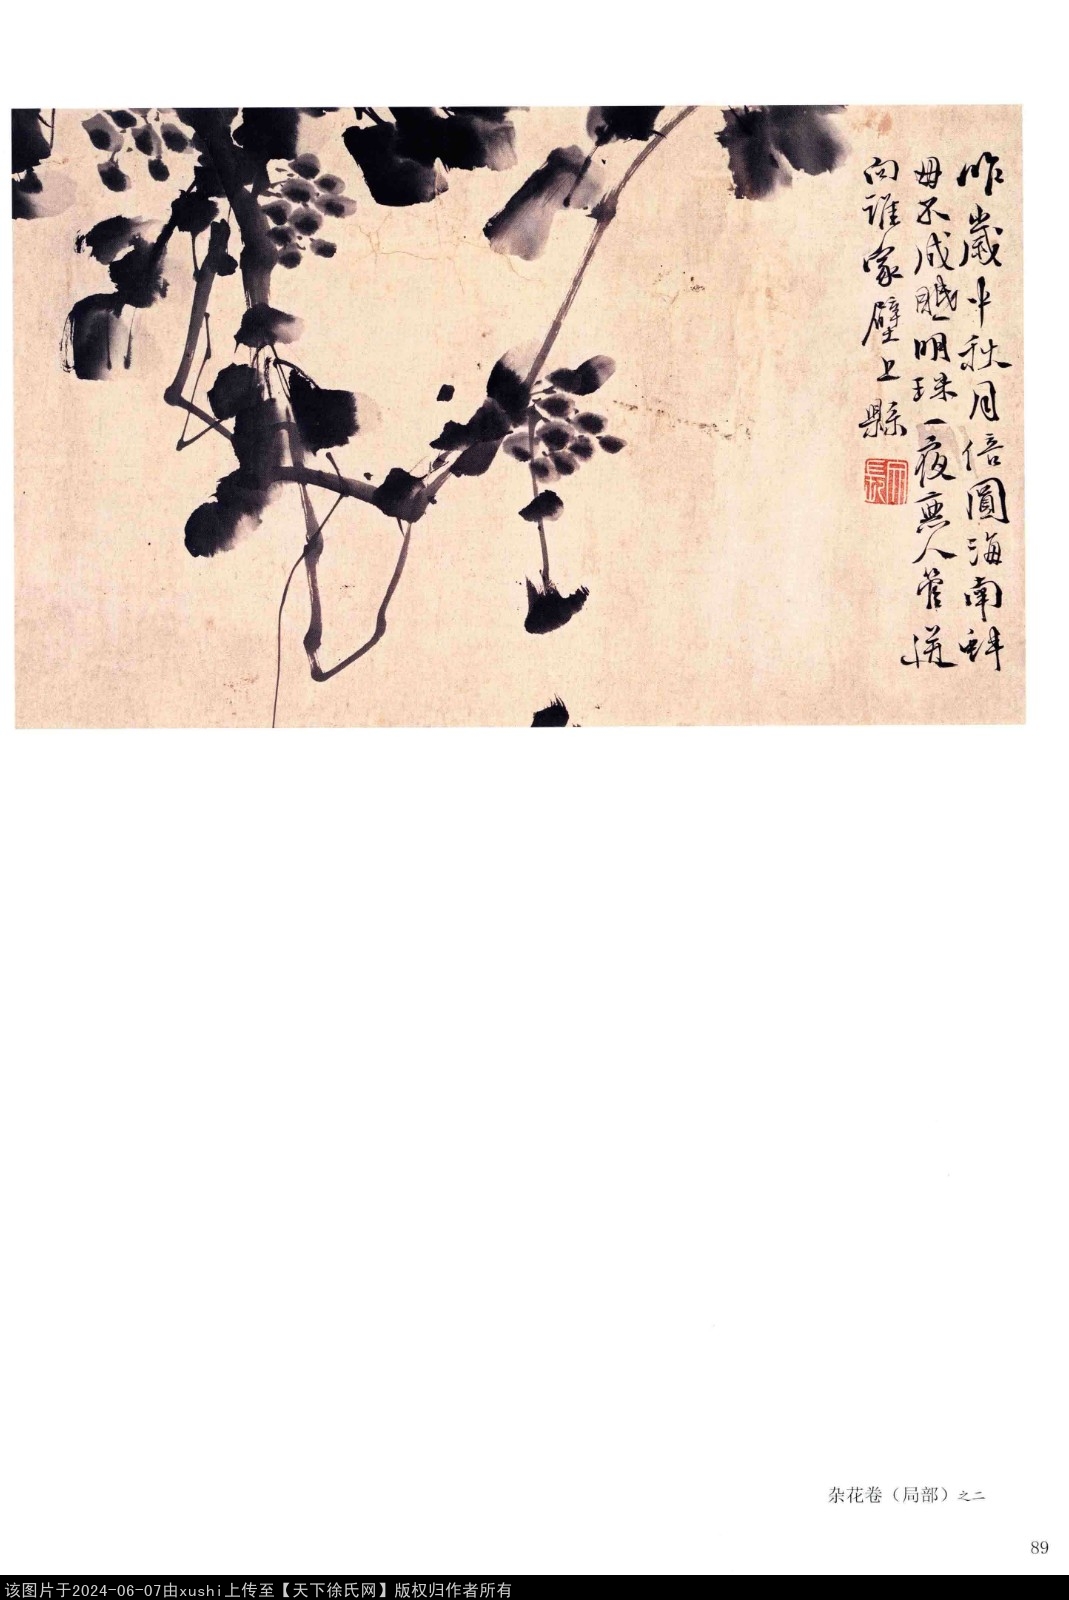 昨歲中秋月倍圓海南蚌
母不成眠明珠一夜無人管迸
向誰家壁上懸
杂花卷（局部）之二
89
该图片于2024-06-07由xushi上传至【天下徐氏网】版权归作者所有